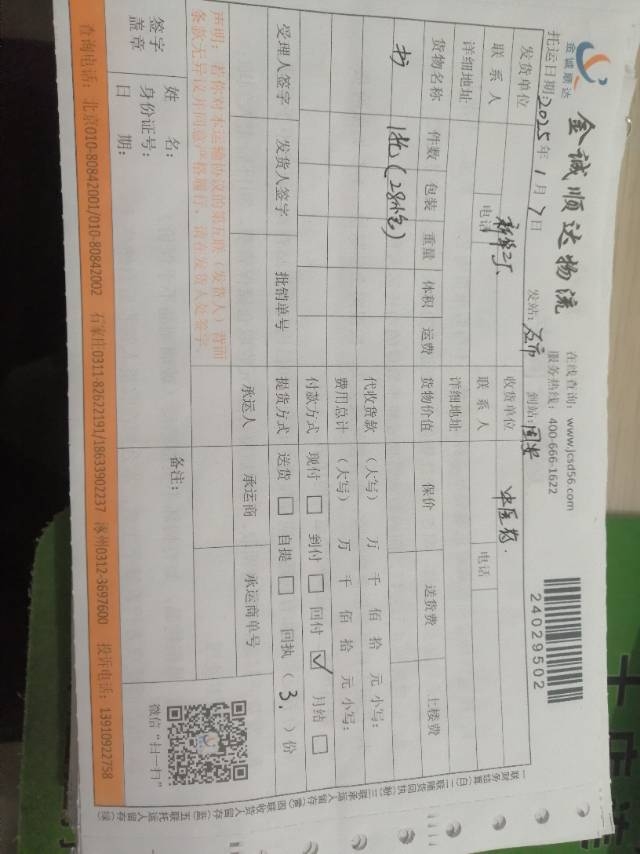 金诚顺达
金诚顺达物流
在线查询：www.jcsd56.com
服务热线：400-666-1622
24029502
托运日期：2025年1月7日 发站：石市 到站：固安
发货单位 新华二厂 收货单位 中医药.
联系人 电话 联系人 电话
详细地址 详细地址
货物名称 件数 包装 重量 体积 运费 货物价值 保价 送货费 上楼费
书 1托(28小包)
代收货款 （大写） 万 千 佰 拾 元 小写：
费用总计 （大写） 万 千 佰 拾 元 小写：
付款方式 现付 □ 到付 □ 回付 ☑ 月结 □
受理人签字 发货人签字 批销单号 提货方式 送货 □ 自提 □ 回执（3.）份
承运人 承运商 承运商单号
声明：若你对本运输协议的第五联（发货人）背面
条款无异议并同意严格履行，请在发货人处签字。
签字
盖章
姓 名：
身份证号：
日 期：
备注：
微信“扫一扫”
查询电话：北京010-80842001/010-80842002 石家庄0311-82622191/18633902237 涿州0312-3697600 投诉电话：13910922758